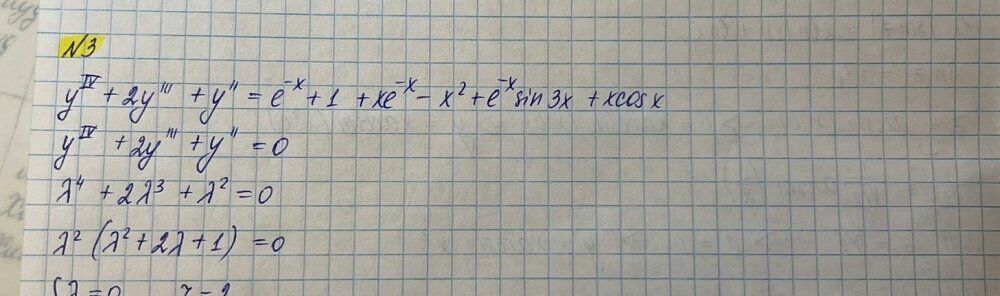 N3
y^IV + 2y''' + y'' = e^-x + 1 + xe^-x - x^2 + e^-x sin 3x + x cos x
y^IV + 2y''' + y'' = 0
λ^4 + 2λ^3 + λ^2 = 0
λ^2 (λ^2 + 2λ + 1) = 0